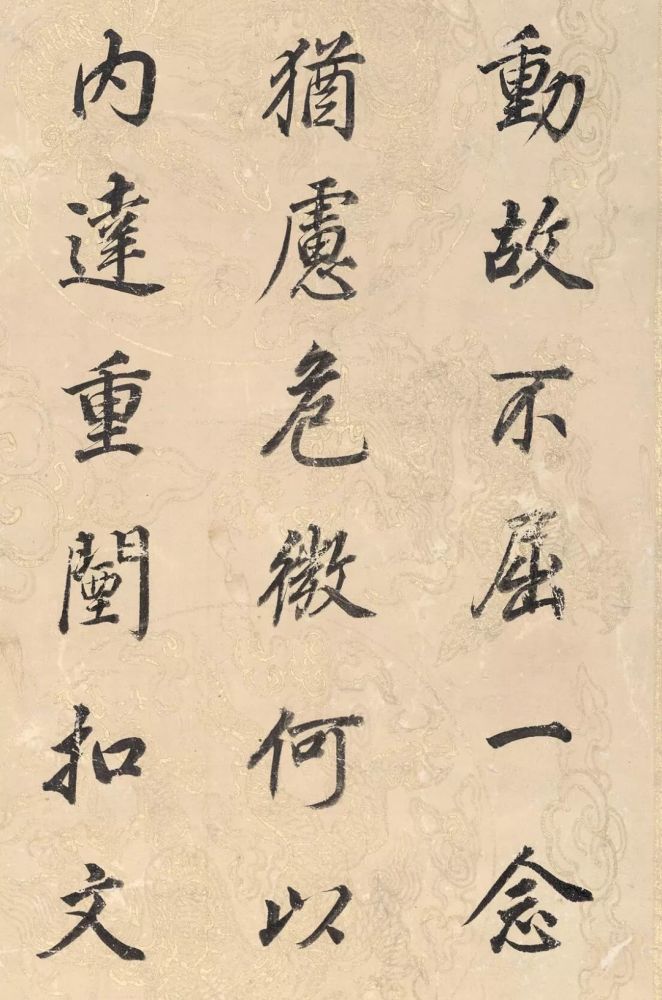 動故不屈一念
猶慮危微何以
内達重闉扣文